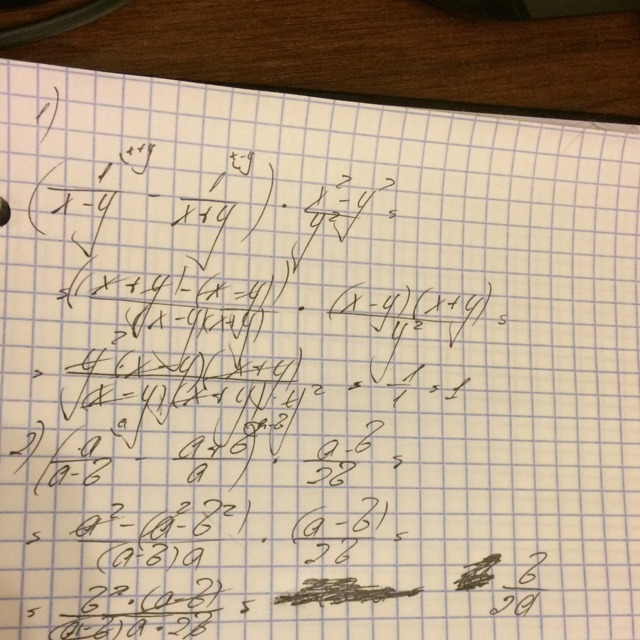 1)
(1/(x-y) ^(x+y) - 1/(x+y) ^(x-y)) · (x²-y²)/y² =
= ((x+y)-(x-y))/((x-y)(x+y)) · ((x-y)(x+y))/y² =
= (y²·(x-y)(x+y))/((x-y)(x+y)·y²) = 1/1 = 1
2) (a/(a-b) ^a - (a+b)/a ^(a-b)) · (a-b)/2b =
= (a²-(a²-b²))/((a-b)a) · (a-b)/2b =
= (b²·(a-b))/((a-b)a·2b) = b/2a